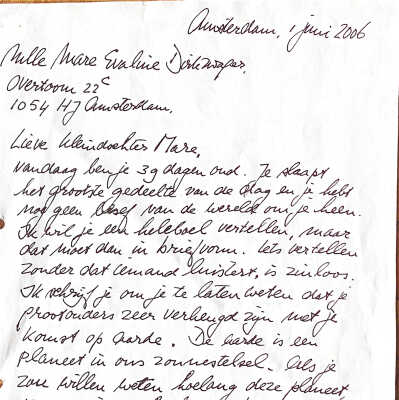 Amsterdam, 1 juni 2006
Mlle Mare Evaline Dirkzwager.
Overtoom 22c
1054 HJ Amsterdam.
Lieve kleindochter Mare,
Vandaag ben je 39 dagen oud. Je slaapt
het grootste gedeelte van de dag en je hebt
nog geen besef van de wereld om je heen.
Ik wil je een heleboel vertellen, maar
dat moet dan in briefvorm. Iets vertellen
zonder dat iemand luistert, is zinloos.
Ik schrijf je om je te laten weten dat je
grootouders zeer verheugd zijn met je
komst op aarde. De aarde is een
planeet in ons zonnestelsel. Als je
zou willen weten hoelang deze planeet